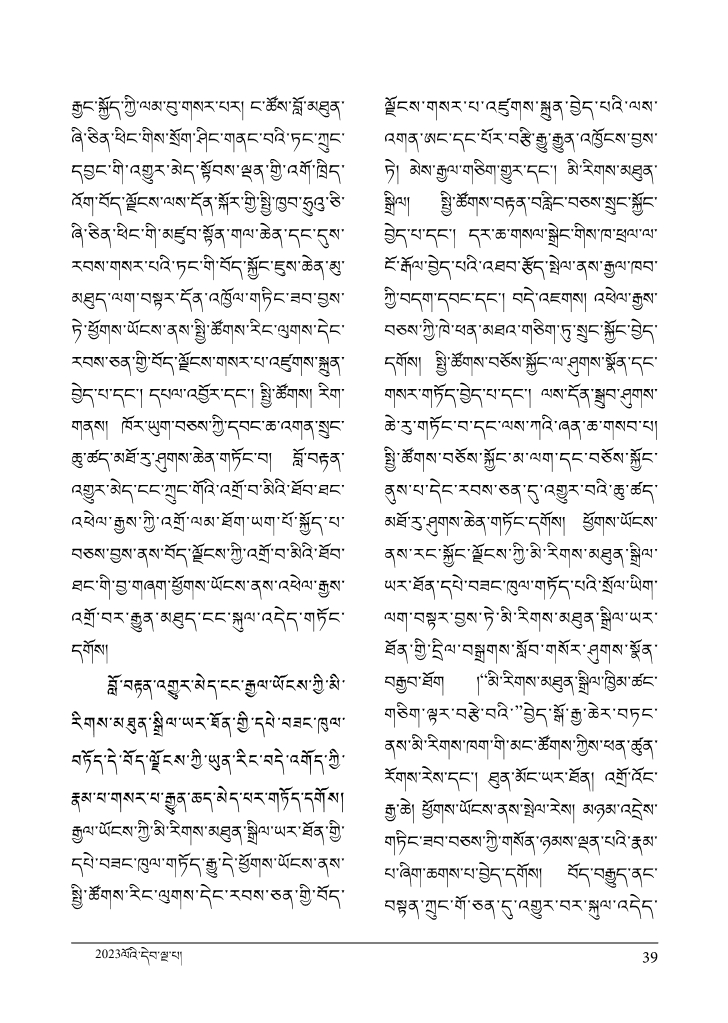 རྒྱང་སྐྱོད་ཀྱི་ལམ་བུ་གསར་པར། ང་ཚོས་བློ་མཐུན་
ཞི་ཅིན་ཕིང་གིས་སྲོག་ཤིང་གནང་བའི་ཏང་ཀྲུང་
དབྱང་གི་འགྱུར་མེད་སྟོབས་ལྡན་གྱི་འགོ་ཁྲིད་
འོག་བོད་ལྗོངས་ལས་དོན་སྐོར་གྱི་སྤྱི་ཁྱབ་ཧྲུའུ་ཅི་
ཞི་ཅིན་ཕིང་གི་མཛུབ་སྟོན་གལ་ཆེན་དང་དུས་
རབས་གསར་པའི་ཏང་གི་བོད་སྐྱོང་ཇུས་ཆེན་མུ་
མཐུད་ལག་བསྟར་དོན་འཁྱོལ་གཏིང་ཟབ་བྱས་
ཏེ་ཕྱོགས་ཡོངས་ནས་སྤྱི་ཚོགས་རིང་ལུགས་དེང་
རབས་ཅན་གྱི་བོད་ལྗོངས་གསར་པ་འཛུགས་སྐྲུན་
བྱེད་པ་དང་། དཔལ་འབྱོར་དང་། སྤྱི་ཚོགས། རིག་
གནས། ཁོར་ཡུག་བཅས་ཀྱི་དབང་ཆ་འགན་སྲུང་
ཆུ་ཚད་མཐོ་རུ་ཤུགས་ཆེན་གཏོང་བ། བློ་བརྟན་
འགྱུར་མེད་ངང་ཀྲུང་གོའི་འགྲོ་བ་མིའི་ཐོབ་ཐང་
འཕེལ་རྒྱས་ཀྱི་འགྲོ་ལམ་ཐོག་ཡག་པོ་སྐྱོད་པ་
བཅས་བྱས་ནས་བོད་ལྗོངས་ཀྱི་འགྲོ་བ་མིའི་ཐོབ་
ཐང་གི་བྱ་གཞག་ཕྱོགས་ཡོངས་ནས་འཕེལ་རྒྱས་
འགྲོ་བར་རྒྱུན་མཐུད་ངང་སྐུལ་འདེད་གཏོང་
དགོས།
བློ་བརྟན་འགྱུར་མེད་ངང་རྒྱལ་ཡོངས་ཀྱི་མི་
རིགས་མཐུན་སྒྲིལ་ཡར་ཐོན་གྱི་དཔེ་བཟང་ཁུལ་
བཏོད་དེ་བོད་ལྗོངས་ཀྱི་ཡུན་རིང་བདེ་འགོད་ཀྱི་
རྣམ་པ་གསར་པ་རྒྱུན་ཆད་མེད་པར་གཏོད་དགོས།
རྒྱལ་ཡོངས་ཀྱི་མི་རིགས་མཐུན་སྒྲིལ་ཡར་ཐོན་གྱི་
དཔེ་བཟང་ཁུལ་གཏོད་རྒྱུ་དེ་ཕྱོགས་ཡོངས་ནས་
སྤྱི་ཚོགས་རིང་ལུགས་དེང་རབས་ཅན་གྱི་བོད་
ལྗོངས་གསར་པ་འཛུགས་སྐྲུན་བྱེད་པའི་ལས་
འགན་ཨང་དང་པོར་བརྩི་རྒྱུ་རྒྱུན་འཁྱོངས་བྱས་
ཏེ། མེས་རྒྱལ་གཅིག་གྱུར་དང་། མི་རིགས་མཐུན་
སྒྲིལ། སྤྱི་ཚོགས་བརྟན་བརླིང་བཅས་སྲུང་སྐྱོང་
བྱེད་པ་དང་། དར་ཆ་གསལ་སྒྲེང་གིས་ཁ་ཕྲལ་ལ་
ངོ་རྒོལ་བྱེད་པའི་འཐབ་རྩོད་སྤེལ་ནས་རྒྱལ་ཁབ་
ཀྱི་བདག་དབང་དང་། བདེ་འཇགས། འཕེལ་རྒྱས་
བཅས་ཀྱི་ཁེ་ཕན་མཐའ་གཅིག་ཏུ་སྲུང་སྐྱོང་བྱེད་
དགོས། སྤྱི་ཚོགས་བཅོས་སྐྱོང་ལ་ཤུགས་སྣོན་དང་
གསར་གཏོད་བྱེད་པ་དང་། ལས་དོན་སྒྲུབ་ཤུགས་
ཆེ་རུ་གཏོང་བ་དང་ལས་ཀའི་ཞན་ཆ་གསབ་པ།
སྤྱི་ཚོགས་བཅོས་སྐྱོང་མ་ལག་དང་བཅོས་སྐྱོང་
ནུས་པ་དེང་རབས་ཅན་དུ་འགྱུར་བའི་ཆུ་ཚད་
མཐོ་རུ་ཤུགས་ཆེན་གཏོང་དགོས། ཕྱོགས་ཡོངས་
ནས་རང་སྐྱོང་ལྗོངས་ཀྱི་མི་རིགས་མཐུན་སྒྲིལ་
ཡར་ཐོན་དཔེ་བཟང་ཁུལ་གཏོད་པའི་སྲོལ་ཡིག་
ལག་བསྟར་བྱས་ཏེ་མི་རིགས་མཐུན་སྒྲིལ་ཡར་
ཐོན་གྱི་དྲིལ་བསྒྲགས་སློབ་གསོར་ཤུགས་སྣོན་
བརྒྱབ་ཐོག །“མི་རིགས་མཐུན་སྒྲིལ་ཁྱིམ་ཚང་
གཅིག་ལྟར་བརྩེ་བའི་”བྱེད་སྒོ་རྒྱ་ཆེར་བཏང་
ནས་མི་རིགས་ཁག་གི་མང་ཚོགས་ཀྱིས་ཕན་ཚུན་
རོགས་རེས་དང་། ཐུན་མོང་ཡར་ཐོན། འགྲོ་འོང་
རྒྱ་ཆེ། ཕྱོགས་ཡོངས་ནས་སྤེལ་རེས། མཉམ་འདྲེས་
གཏིང་ཟབ་བཅས་ཀྱི་གསོན་ཉམས་ལྡན་པའི་རྣམ་
པ་ཞིག་ཆགས་པ་བྱེད་དགོས། བོད་བརྒྱུད་ནང་
བསྟན་ཀྲུང་གོ་ཅན་དུ་འགྱུར་བར་སྐུལ་འདེད་
2023ལོའི་དེབ་ལྔ་པ།
39